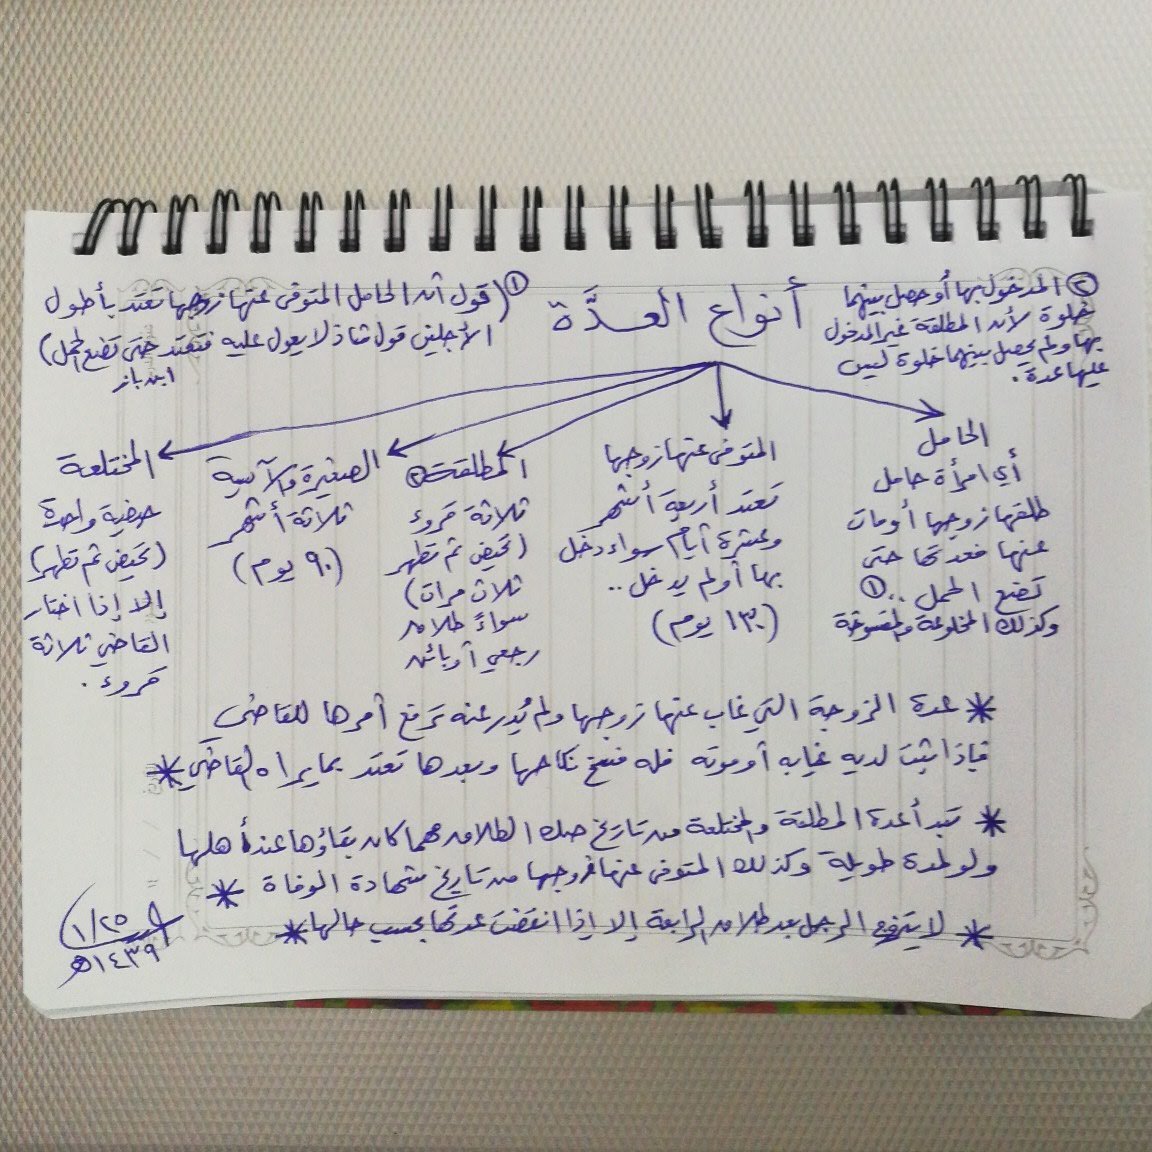 أنواع العدَّة
② المدخول بها أو حصل بينهما
خلوة لأن المطلقة غير المدخول
بها ولم يحصل بينهما خلوة ليس
عليها عدة .
① (قول أن الحامل المتوفى عنها زوجها تعتد بأطول
الأجلين قول شاذ لا يعول عليه فتعتد حتى تضع الحمل)
ابن باز
الحامل
أي امرأة حامل
طلقها زوجها أو مات
عنها فعدتها حتى
تضع الحمل .. ①
وكذلك المخلوعة والمفسوخة
المتوفى عنها زوجها
تعتد أربعة أشهر
وعشرة أيام سواء دخل
بها أو لم يدخل ..
(١٣٠ يوم)
المطلقة ②
ثلاثة قروء
(تحيض ثم تطهر
ثلاث مرات)
سواءً طلاق
رجعي أو بائن
الصغيرة والآيسة
ثلاثة أشهر
(٩٠ يوم)
المختلعة
حيضة واحدة
(تحيض ثم تطهر)
إلا إذا اختار
القاضي ثلاثة
قروء .
* عدة الزوجة التي غاب عنها زوجها ولم يُدر عنه ترفع أمرها للقاضي
فإذا ثبت لديه غيابه أو موته فله فسخ نكاحها وبعدها تعتد بما يراه القاضي *
* تبدأ عدة المطلقة والمختلعة من تاريخ صك الطلاق مهما كان بقاؤها عند أهلها
ولو لمدة طويلة وكذلك المتوفى عنها زوجها من تاريخ شهادة الوفاة *
* لا يتزوج الرجل بعد طلاق الرابعة إلا إذا انقضت عدتها بحسب حالها *
١/٢٥
١٤٣٩هـ